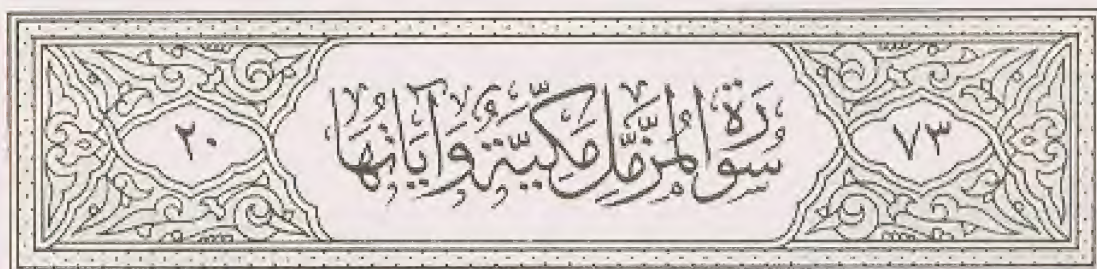 ٧٣ سُورَةُ المُزَّمِّلِ مَكِّيَّةٌ وَآيَاتُهَا ٢٠